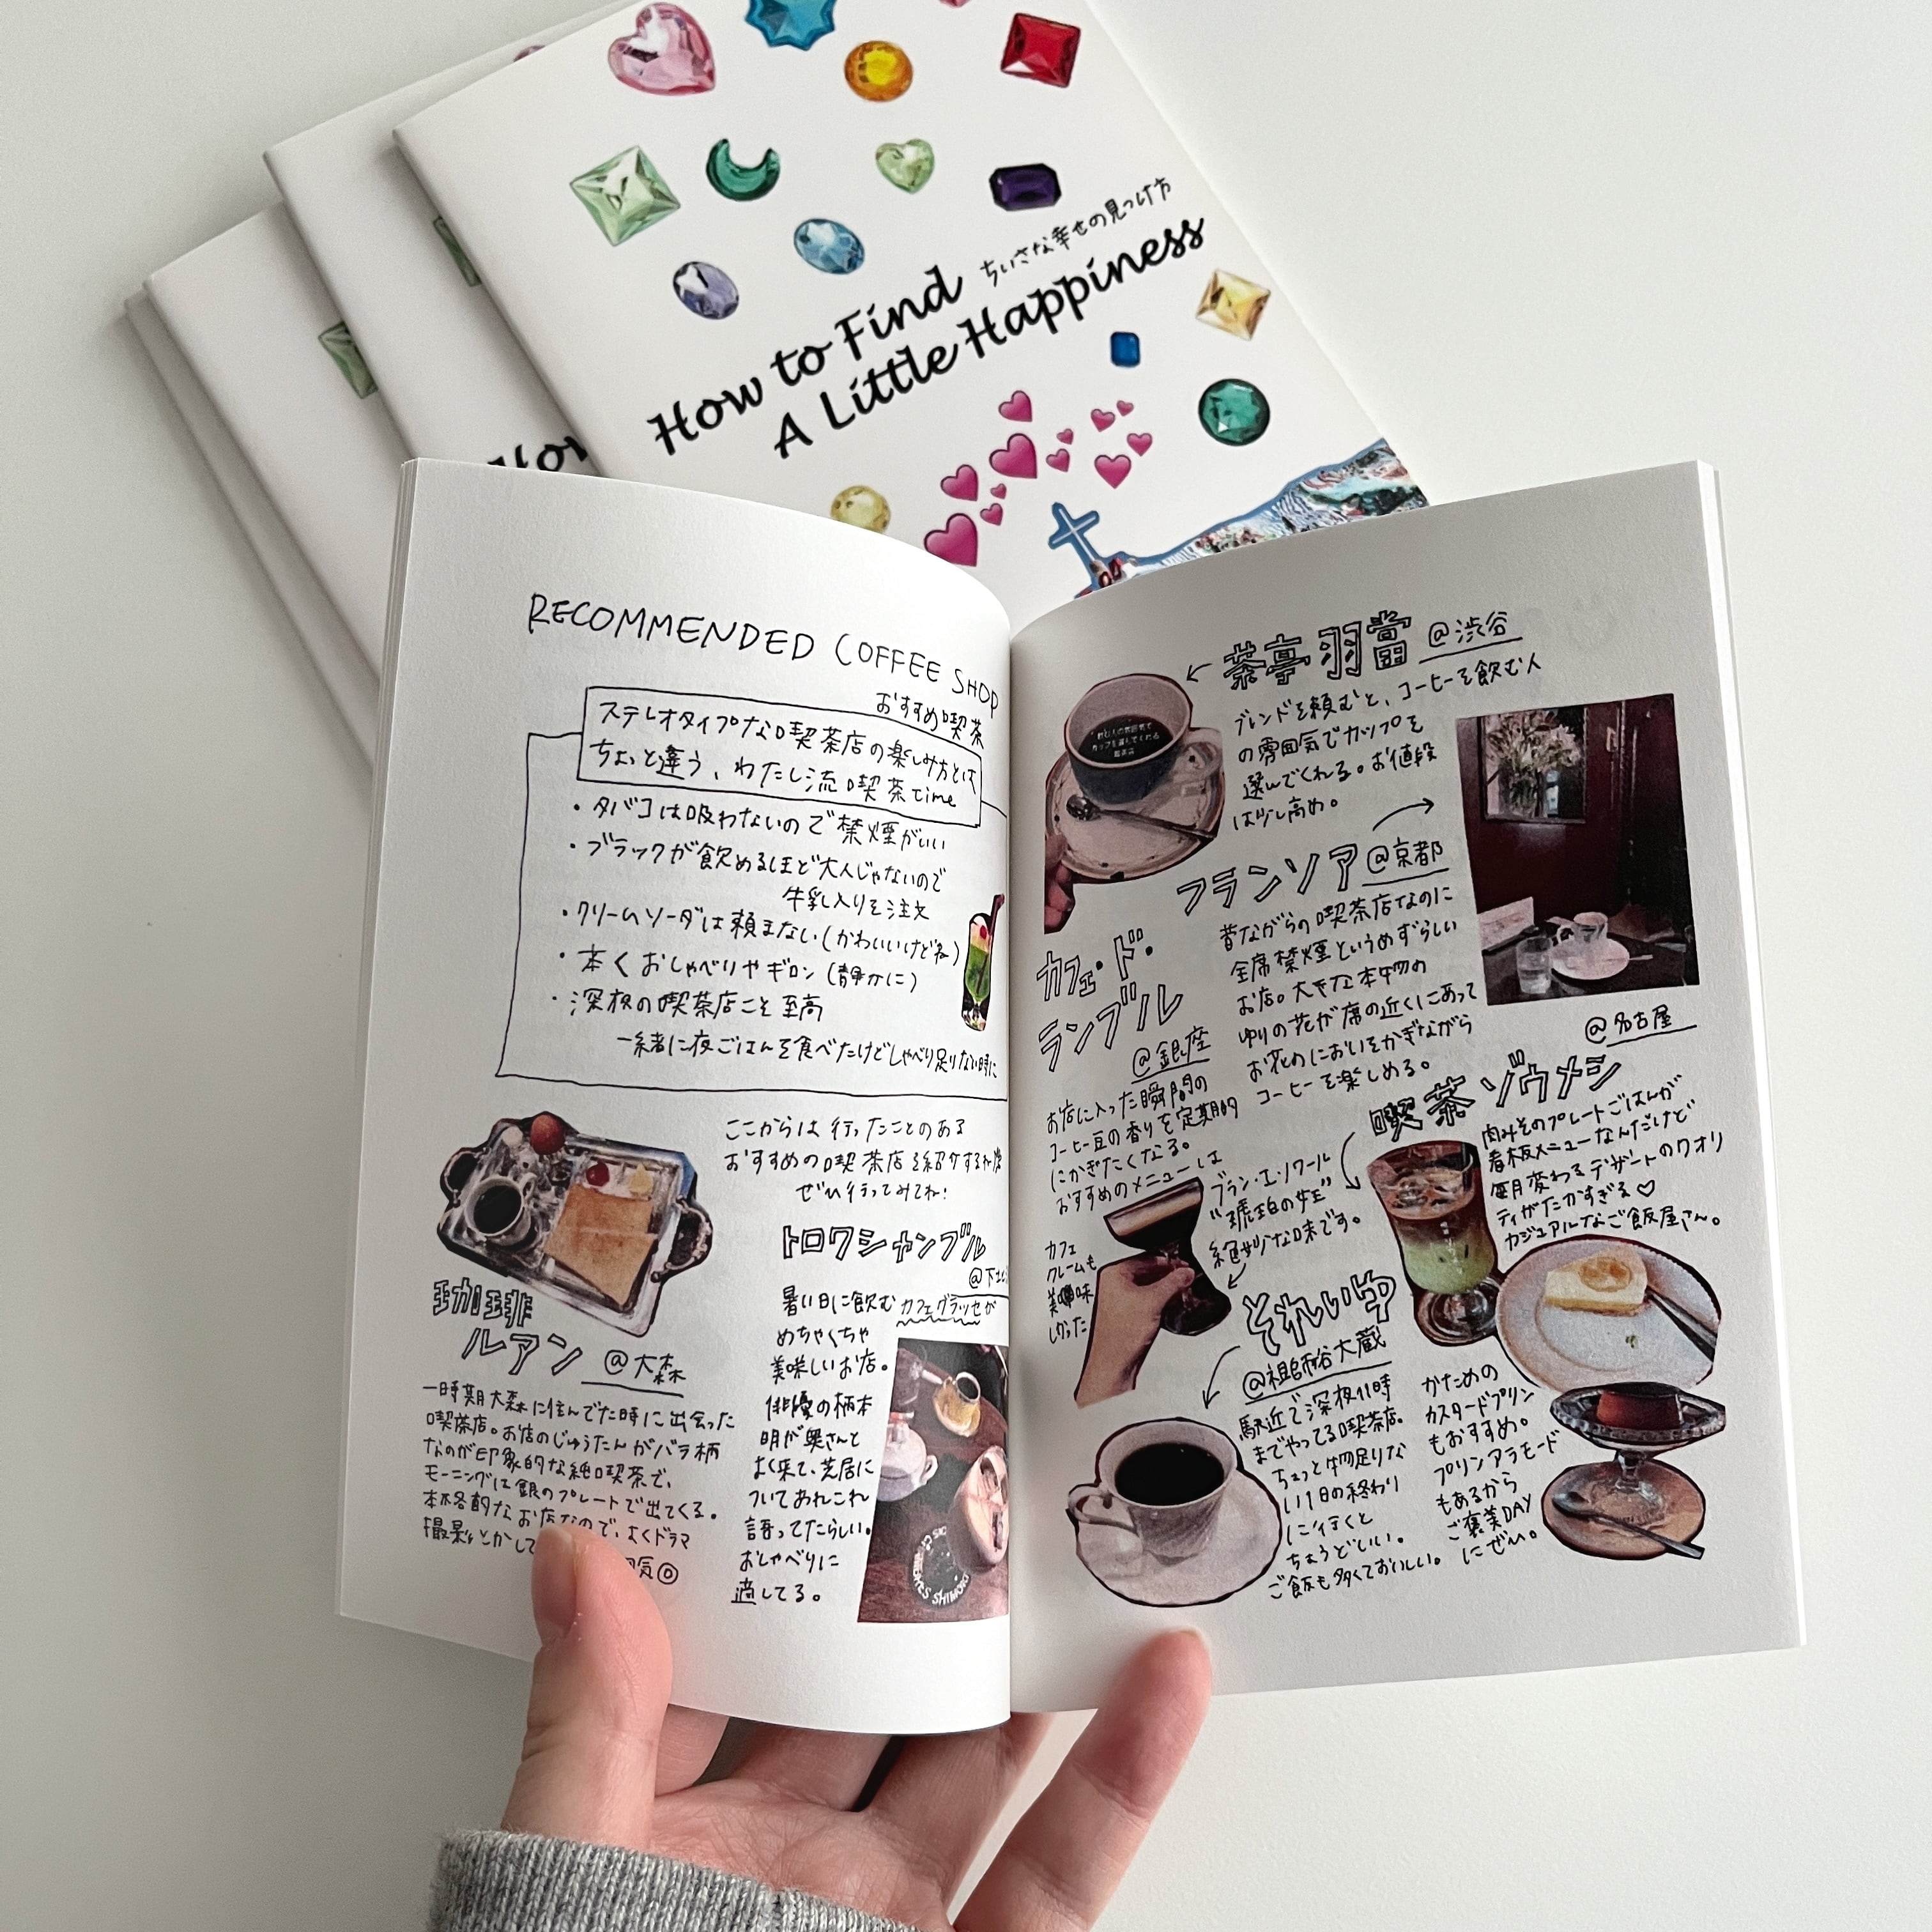 ちいさな幸せの見つけ方
How to Find
A Little Happiness
How
RECOMMENDED COFFEE SHOP
おすすめ喫茶
ステレオタイプな喫茶店の楽しみ方とは
ちょっと違う、わたし流喫茶time
・タバコは吸わないので禁煙がいい
・ブラックが飲めるほど大人じゃないので
牛乳入りを注文
・クリームソーダは頼まない(かわいいけどね)
・本くおしゃべりやギロン(静かに)
・深夜の喫茶店こそ至高
一緒に夜ごはんを食べたけどしゃべり足りない時に
ここからは行ったことのある
おすすめの喫茶店を紹介するね
ぜひ行ってみてね!
珈琲
ルアン @大森
一時期大森に住んでた時に出会った
喫茶店。お店のじゅうたんがバラ柄
なのが印象的な純喫茶で、
モーニングは銀のプレートで出てくる。
本格的なお店なので、よくドラマ
撮影とかして
気◎
トロワシャンブル
@下北
暑い日に飲むカフェグラッセが
めちゃくちゃ
美味しいお店。
俳優の柄本
明が奥さんと
よく来て、芝居に
ついてあれこれ
語ってたらしい。
おしゃべりに
適してる。
茶亭 羽當 @渋谷
ブレンドを頼むと、コーヒーを飲む人
の雰囲気でカップを
選んでくれる。お値段
は少し高め。
フランソア@京都
昔ながらの喫茶店なのに
全席禁煙というめずらしい
お店。大きな本物の
ゆりの花が席の近くにあって
お花のにおいをかぎながら
コーヒーを楽しめる。
カフェ・ド・
ランブル
@銀座
お店に入った瞬間の
コーヒー豆の香りを定期的
にかぎたくなる。
おすすめのメニューは
ブラン・エ・ノワール
"琥珀の女王"
絶妙な味です。
カフェ
クレームも
美味
しかった
@名古屋
喫茶 ゾウメシ
肉みそのプレートごはんが
看板メニューなんだけど
毎月変わるデザートのクオリ
ティがたかすぎる♡
カジュアルなご飯屋さん。
それいゆ
@祖師谷大蔵
駅近で深夜11時
までやってる喫茶店。
ちょっと物足りな
い1日の終わり
に行くと
ちょうどいい。
ご飯も多くておいしい。
かための
カスタードプリン
もおすすめ。
プリンアラモード
もあるから
ご褒美DAY
にぜひ。